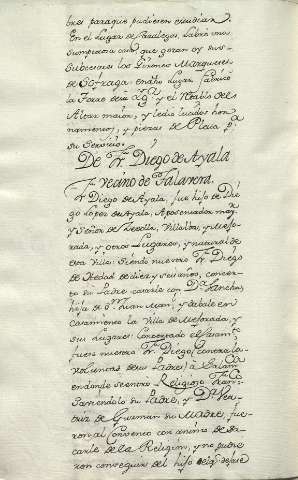 tres paraque pudiesen estudiar.
En el Lugar de Peralegos, Labró una
sumptuosa casa, que gozan oy sus
Subcesores los Señores Marqueses
de en dho Lugar fabricó
la Torre de su Yg.ª y el Retablo del
Altar maior, y le dio lucidos hor
namentos, y piezas de Plata p.ª
su servicio.
De Fr. Diego de Ayala
Vecino de Talavera.
Fr. Diego de Ayala, fue hijo de Die
go Lopez de Ayala, Aposentador may.r
y Señor de Cevolla, Villalba, y Mejo-
rada, y otros Lugares, y natural de
esta Villa: Siendo nuestro Fr. Diego
de Hedad de diez y seis años, concer
tó su Padre casarle con D.ª Sancha,
hija de Juan y dabale en
casamiento la Villa de Mejorada, y
sus lugares: Concertado el casam.to
fuese nuestro Fr. Diego (contra la
voluntad de sus Padres) à Salam.ca
en donde se entró Religioso Fran.co
Sintiendolo su Padre, y D.ª Bea-
triz de Guzman su Madre, fue-
ron al Convento con animo de sa-
carle de la Religion, y no pudie
ron conseguir del hijo el q.e dejase